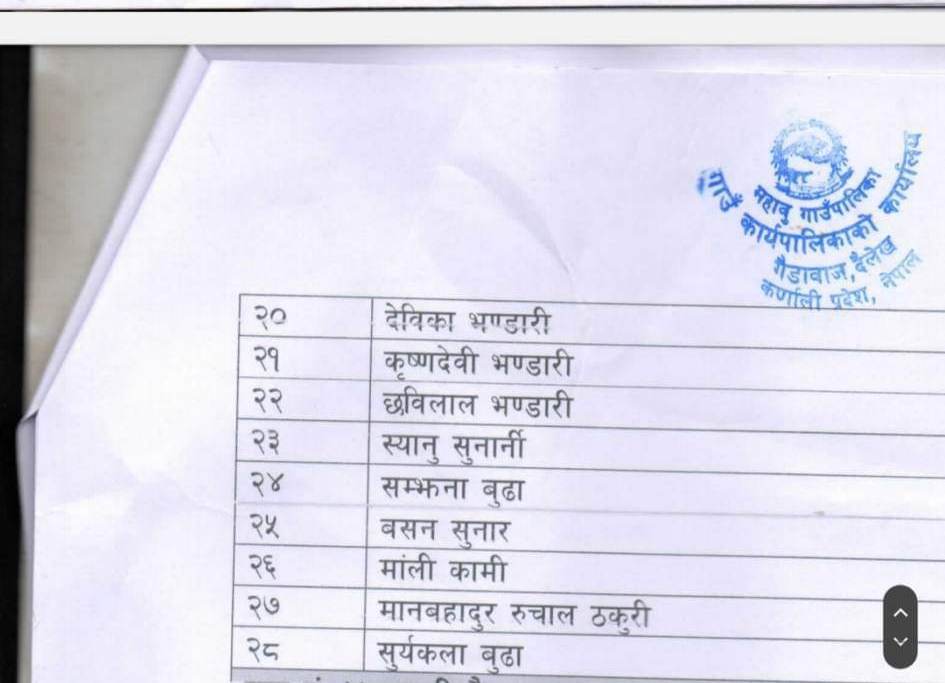 महावु गाउँपालिका
गाउँ कार्यपालिकाको कार्यालय
गैडावाज, दैलेख
कर्णाली प्रदेश, नेपाल
२० देविका भण्डारी
२१ कृष्णदेवी भण्डारी
२२ छविलाल भण्डारी
२३ स्यानु सुनार्नी
२४ सम्झना बुढा
२५ वसन सुनार
२६ मांली कामी
२७ मानबहादुर रुचाल ठकुरी
२८ सुर्यकला बुढा